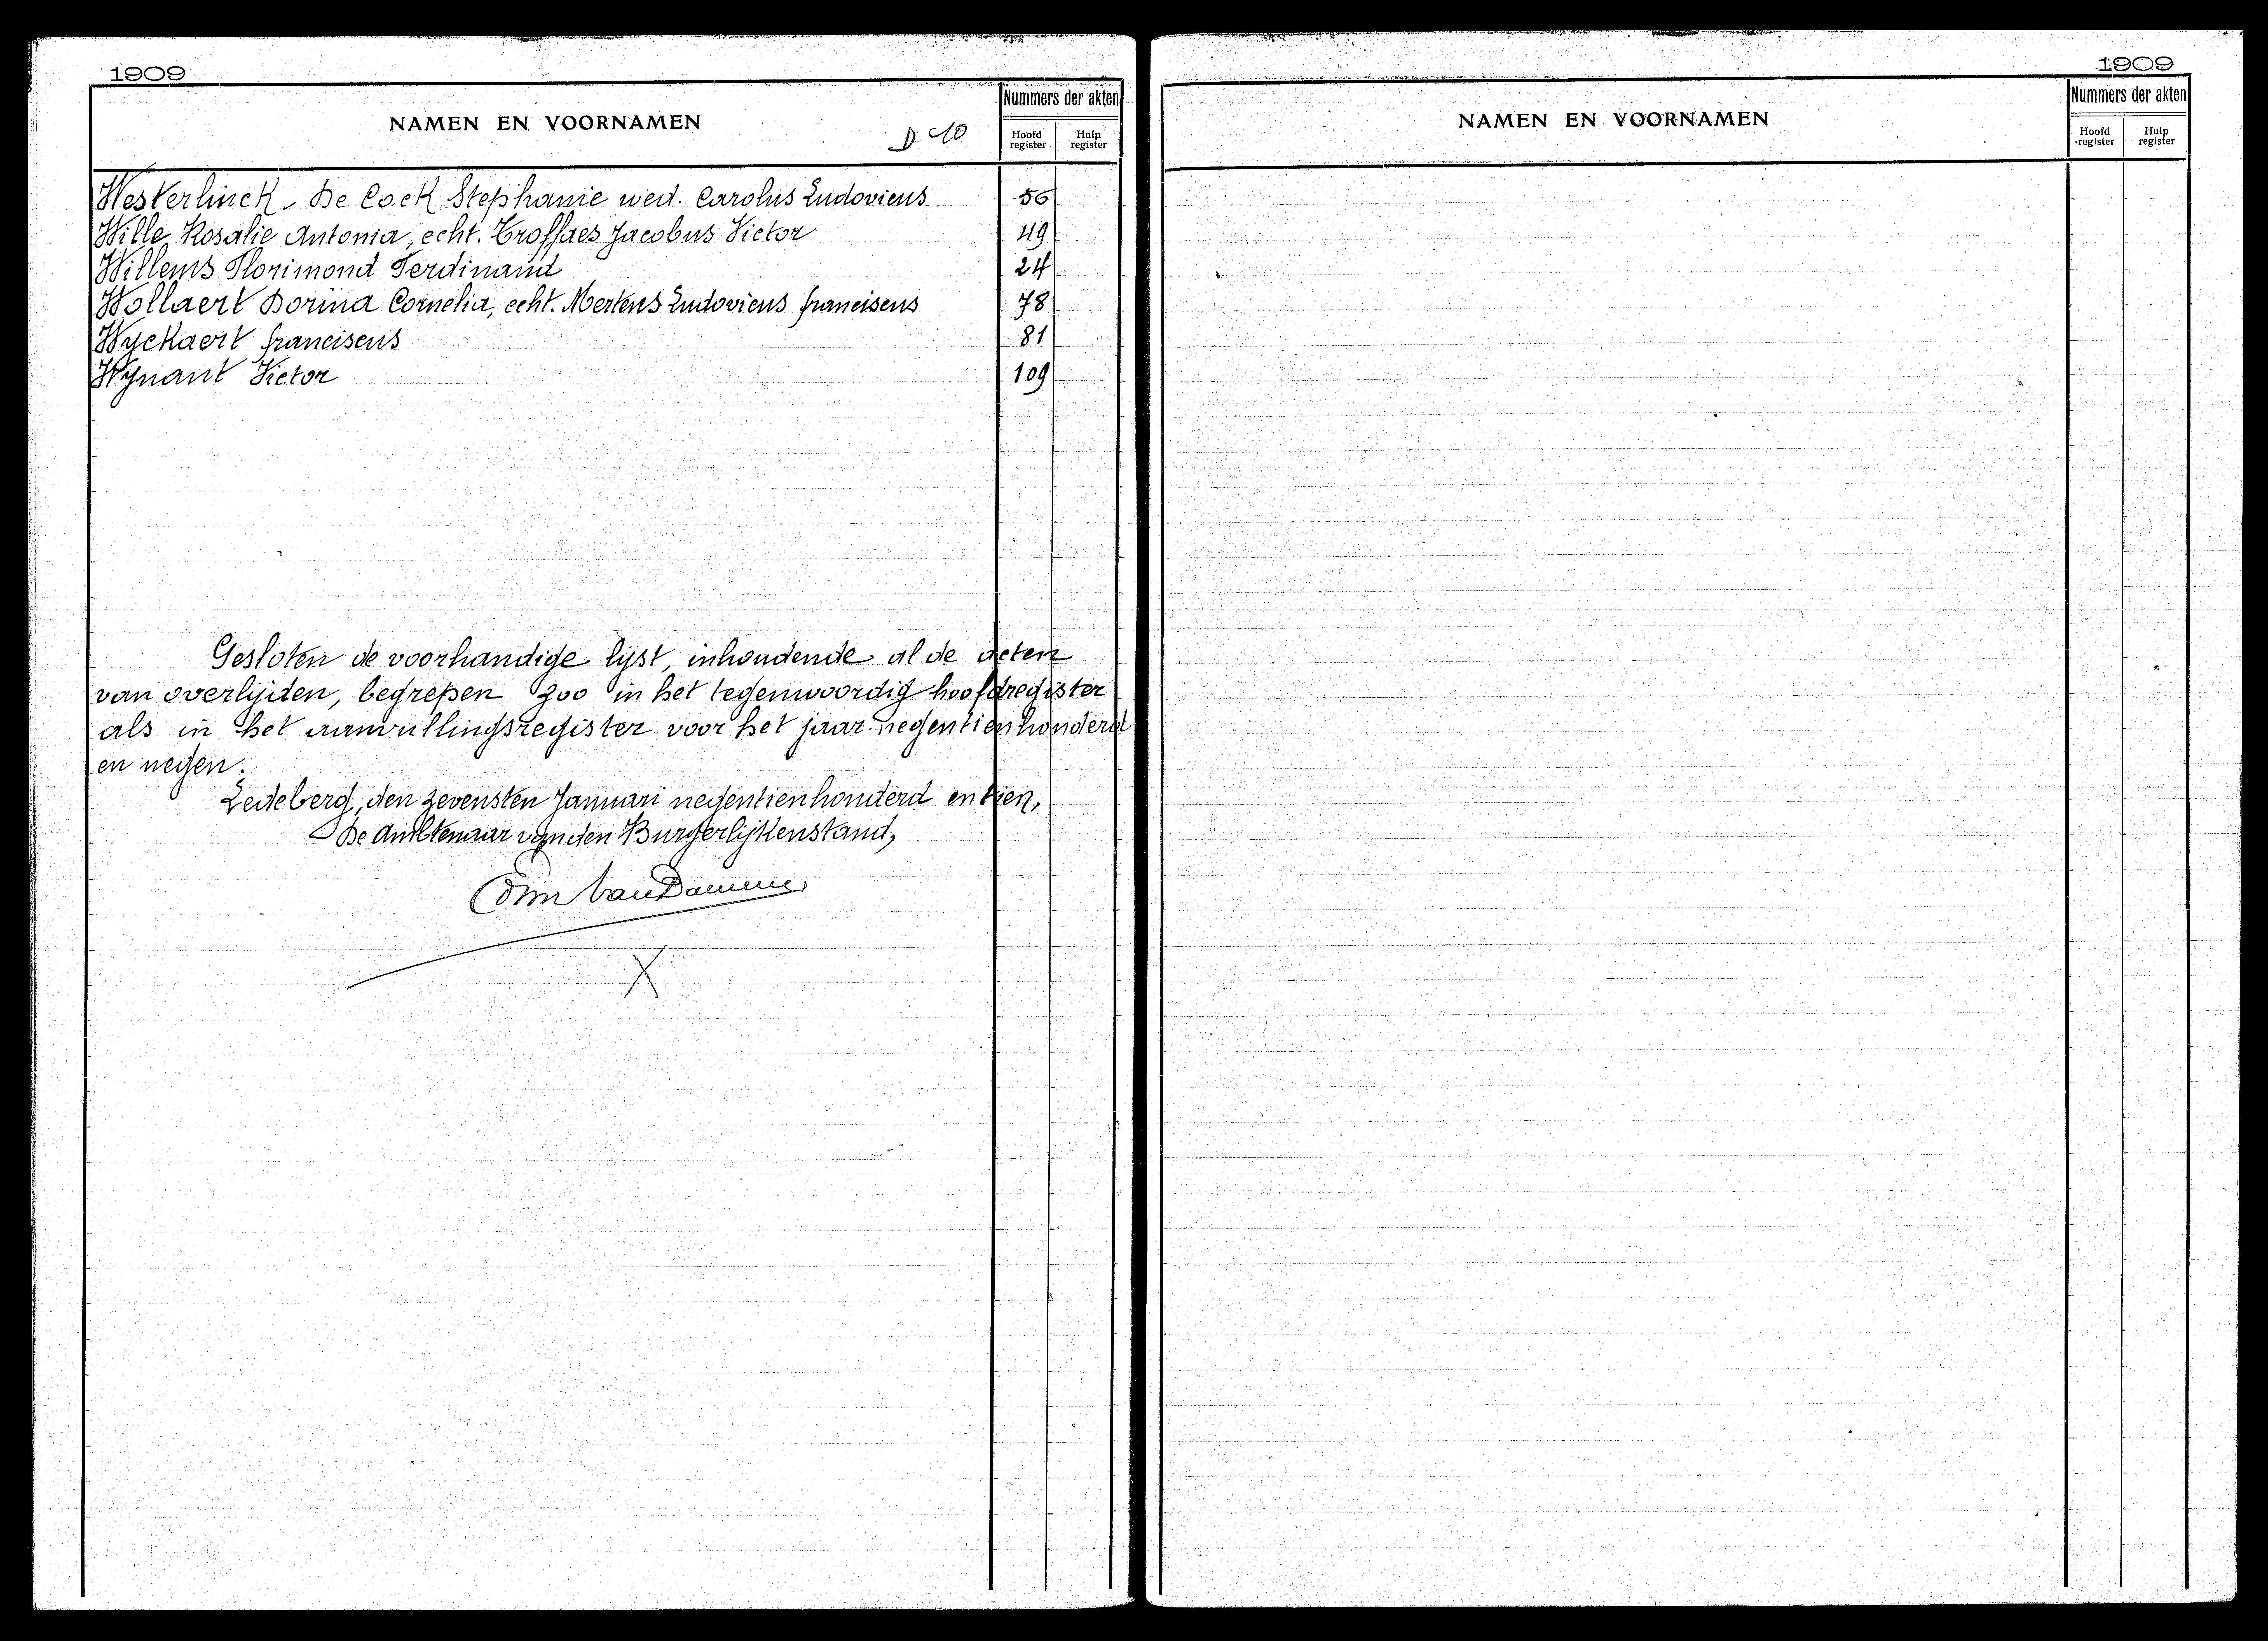 1909
NAMEN EN VOORNAMEN
D. 10
Nummers der akten
Hoofd register
Hulp register
Westerlinck - De Cock Stephanie wed. Carolus Ludovicus 56
Wille Rosalie Antonia, echt. Troffaes Jacobus Victor 49
Willems Florimond Ferdinand 24
Wollaert Dorina Cornelia, echt. Mertens Ludovicus franciscus 78
Wyckaert franciscus 81
Wynant Victor 109
Gesloten de voorhandige lijst, inhoudende al de acten
van overlijden, begrepen zoo in het tegenwoordig hoofdregister
als in het aanvullingsregister voor het jaar negentienhonderd
en negen.
Ledeberg, den zevensten Januari negentienhonderd en tien,
De Ambtenaar van den Burgerlijkenstand,
Van Damme
X
1909
NAMEN EN VOORNAMEN
Nummers der akten
Hoofd register
Hulp register